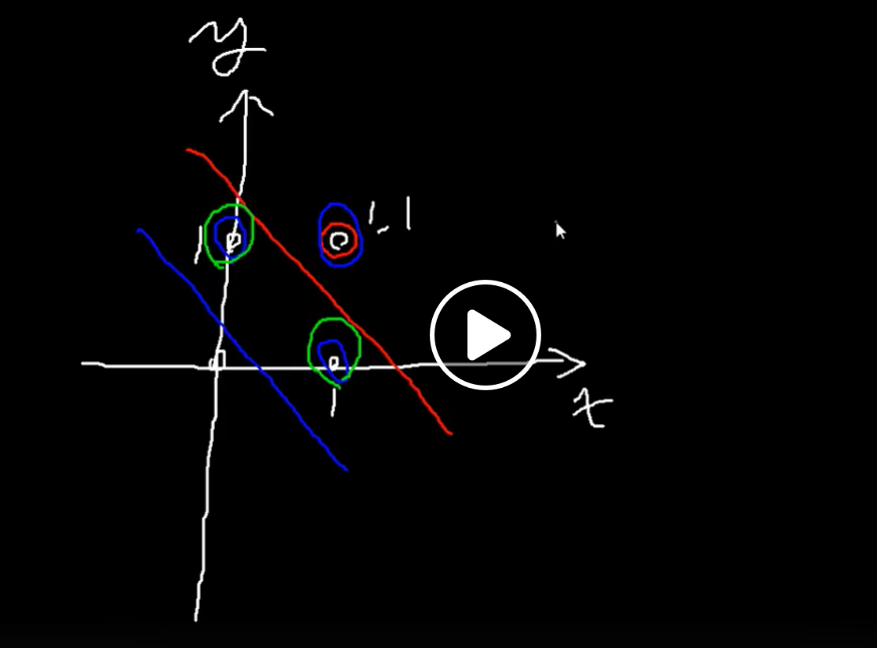 y
1.1
1
1
x